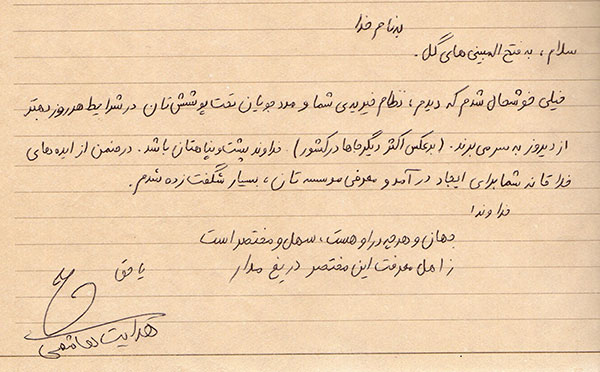 به نام خدا
سلام، به فتح المبینی های گل.
خیلی خوشحال شدم که دیدم، نظام خیریه ی شما و مددجویان تحت پوشش تان در شرایط هر روز بهتر
از دیروز به سر می برند. (برعکس اکثر دیگر جاها در کشور) خداوند پشت و پناهتان باشد. در ضمن از ایده های
خلاقانه شما برای ایجاد درآمد و معرفی موسسه تان، بسیار شگفت زده شدم.
خداوندا
جهان و هرچه در او هست، سهل و مختصر است
ز اهل معرفت این مختصر دریغ مدار
یا حق
هدایت هاشمی